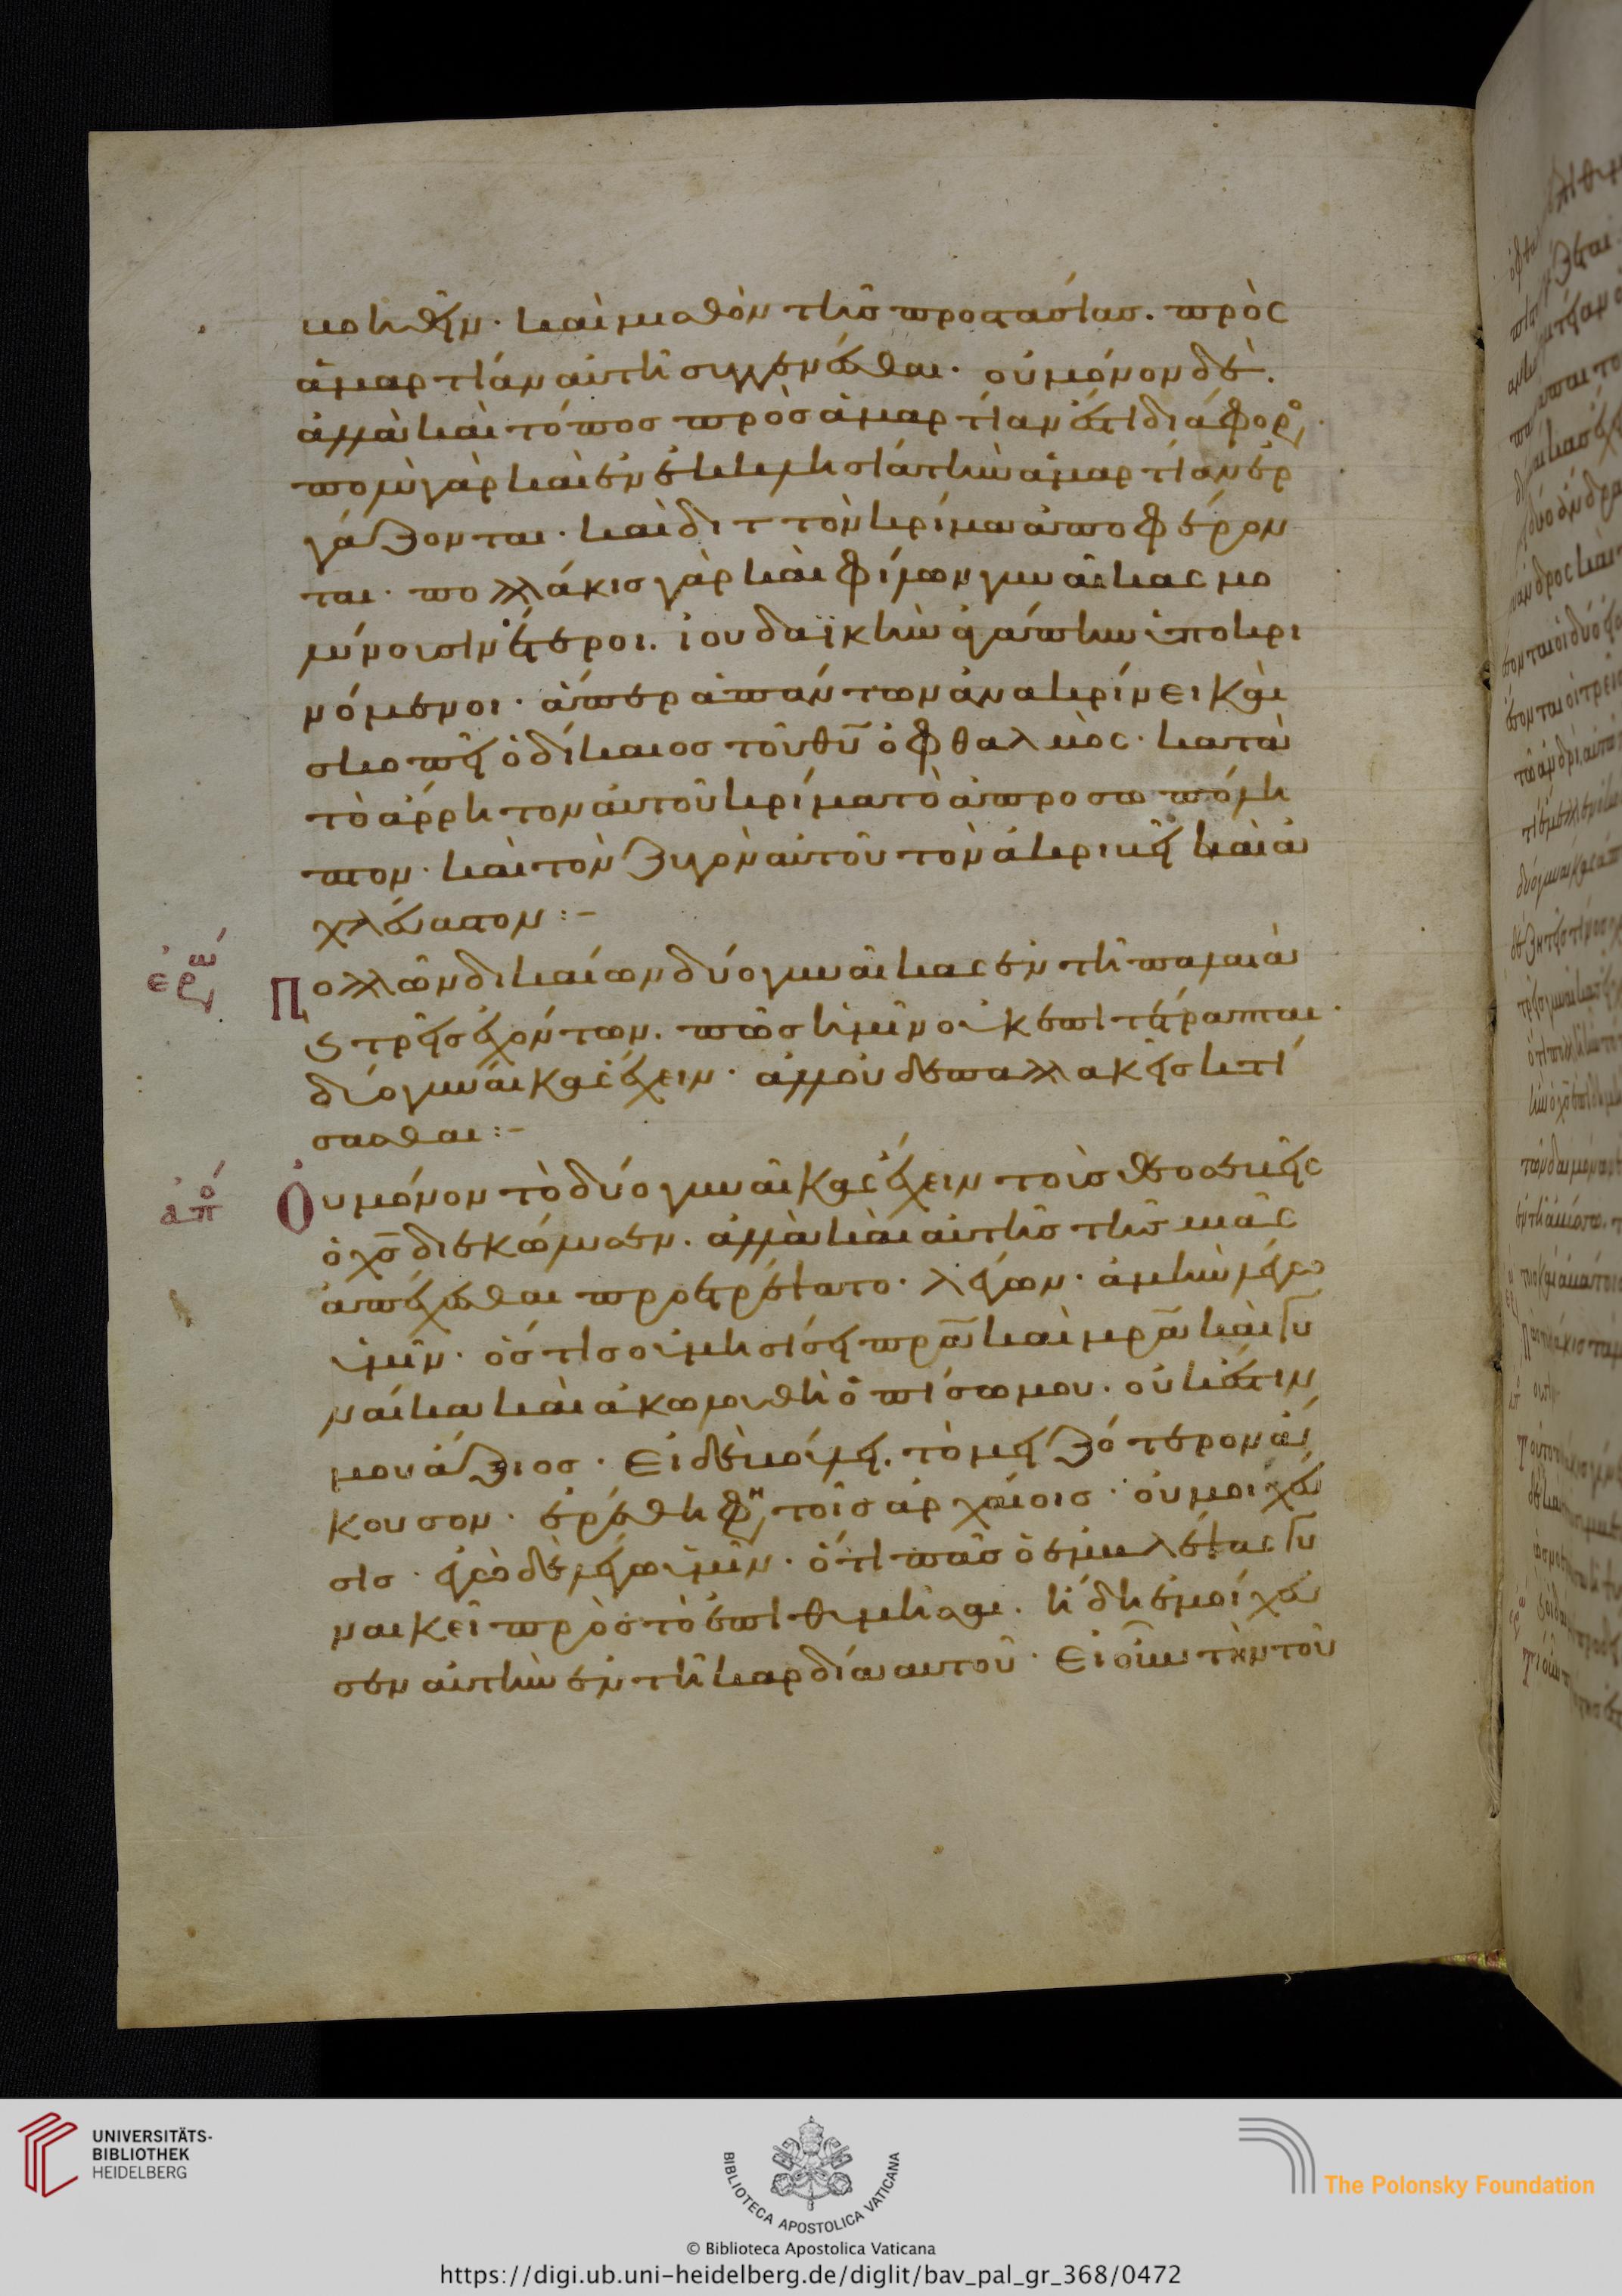 μοιχθῆν· καὶ μισθὸν τῆς προστασίας. πρὸς
ἁμαρτίαν αὐτῆ συγγενέσθαι· οὐ μόνον δὲ.
ἀλλὰ καὶ τόπος πρὸς ἁμαρτίαν ἐστὶ διάφορ
πολὺ γὰρ καὶ ἐν ἐκκλησία τὴν ἁμαρτίαν ἐρ
γάζονται· καὶ διττὸν κρίμα ἀποφέρον
ται· πολλάκις γὰρ καὶ φίλων γυναῖκας μο
λύνουσιν ἕτεροι. ἰουδαϊκὴν ἀγάπην ὑποκρι
νόμενοι· ἅπερ ἁπάντων ἀνακρίνει καὶ
σκοπεῖ ὁ δίκαιος τοῦ θυ ὀφθαλμὸς· κατὰ
τὸ ἄρρητον αὐτοῦ κρίμα τὸ ἀπροσωπόλη
πτον· καὶ τὸν ζυγὸν αὐτοῦ τὸν ἀκριβῆ καὶ ἀ
χλεύαστον:-
ἐρώ
Πολλῶν δικαίων δύο γυναῖκας ἐν τῆ παλαιᾶ
καὶ τρεῖς ἐχόντων. πῶς ἡμῖν οὐκ ἐπιτέτραπται·
δύο γυναῖκας ἔχειν· ἀλλ' οὐδὲ παλλακεῖς κτί
σασθαι:-
ἀπό
Οὐ μόνον τὸ δύο γυναῖκας ἔχειν τοῖς θεοσεβεῖς
ὁ χς διεκώλυσεν. ἀλλὰ καὶ αὐτῆς τῆς μιᾶς
ἀπέχεσθαι προετρέψατο· λέγων· ἀμὴν λέγω
ὑμῖν· ὅστις οὐ μισήσει πρα καὶ μρα καὶ γυ
ναίκα καὶ ἀκολουθῆ ὀπίσω μου. οὐκ ἔστιν
μου ἄξιος· Εἰ δὲ βούλει. τὸ μειζότερον ἄ
κουσον· ἐρέθη φη τοῖς ἀρχαίοις· οὐ μοιχεύ
σις· ἐγὼ δὲ λέγω ὑμῖν· ὅτι πᾶς ὁ ἐμβλέψας γυ
ναικεὶ πρὸς τὸ ἐπιθυμῆσαι. ἤδη ἐμοίχευ
σεν αὐτὴν ἐν τῆ καρδία αυτοῦ· Εἰ οὖν τὴν τοῦ
UNIVERSITÄTS-
BIBLIOTHEK
HEIDELBERG
BIBLIOTECA APOSTOLICA VATICANA
The Polonsky Foundation
© Biblioteca Apostolica Vaticana
https://digi.ub.uni-heidelberg.de/diglit/bav_pal_gr_368/0472